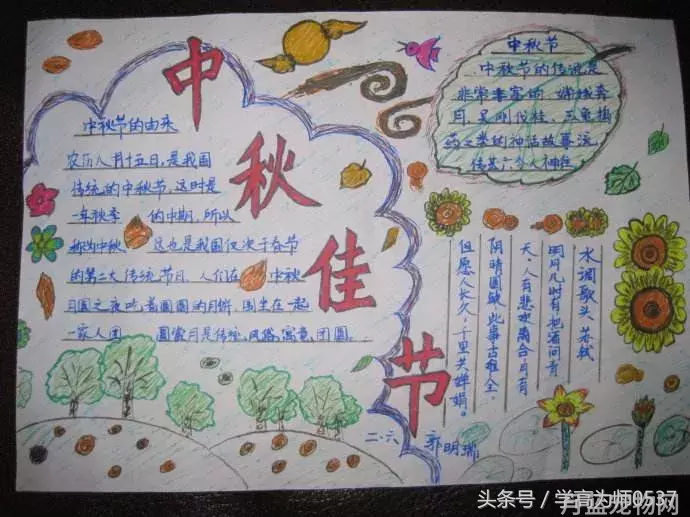 中秋佳节
中秋节的由来
农历八月十五日,是我国
传统的中秋节,这时是
一年秋季 的中期,所以
称为中秋 这也是我国仅次于春节
的第二大传统节日,人们在 中秋
月圆之夜吃着圆圆的月饼,围坐在一起
一家人团 圆赏月是传统,风俗,寓意,团圆。
中秋节
中秋节的传说是
非常丰富的,嫦娥奔
月,吴刚伐桂,玉兔捣
药之类的神话故事流
传甚
水调歌头 苏轼
明月几时有把酒问青
天。人有悲欢离合月有
阴晴圆缺此事古难全。
但愿人长久,千里共婵娟。
二.六 郭明瑞
头条号 / 学高为师0537
月蓝宠物网